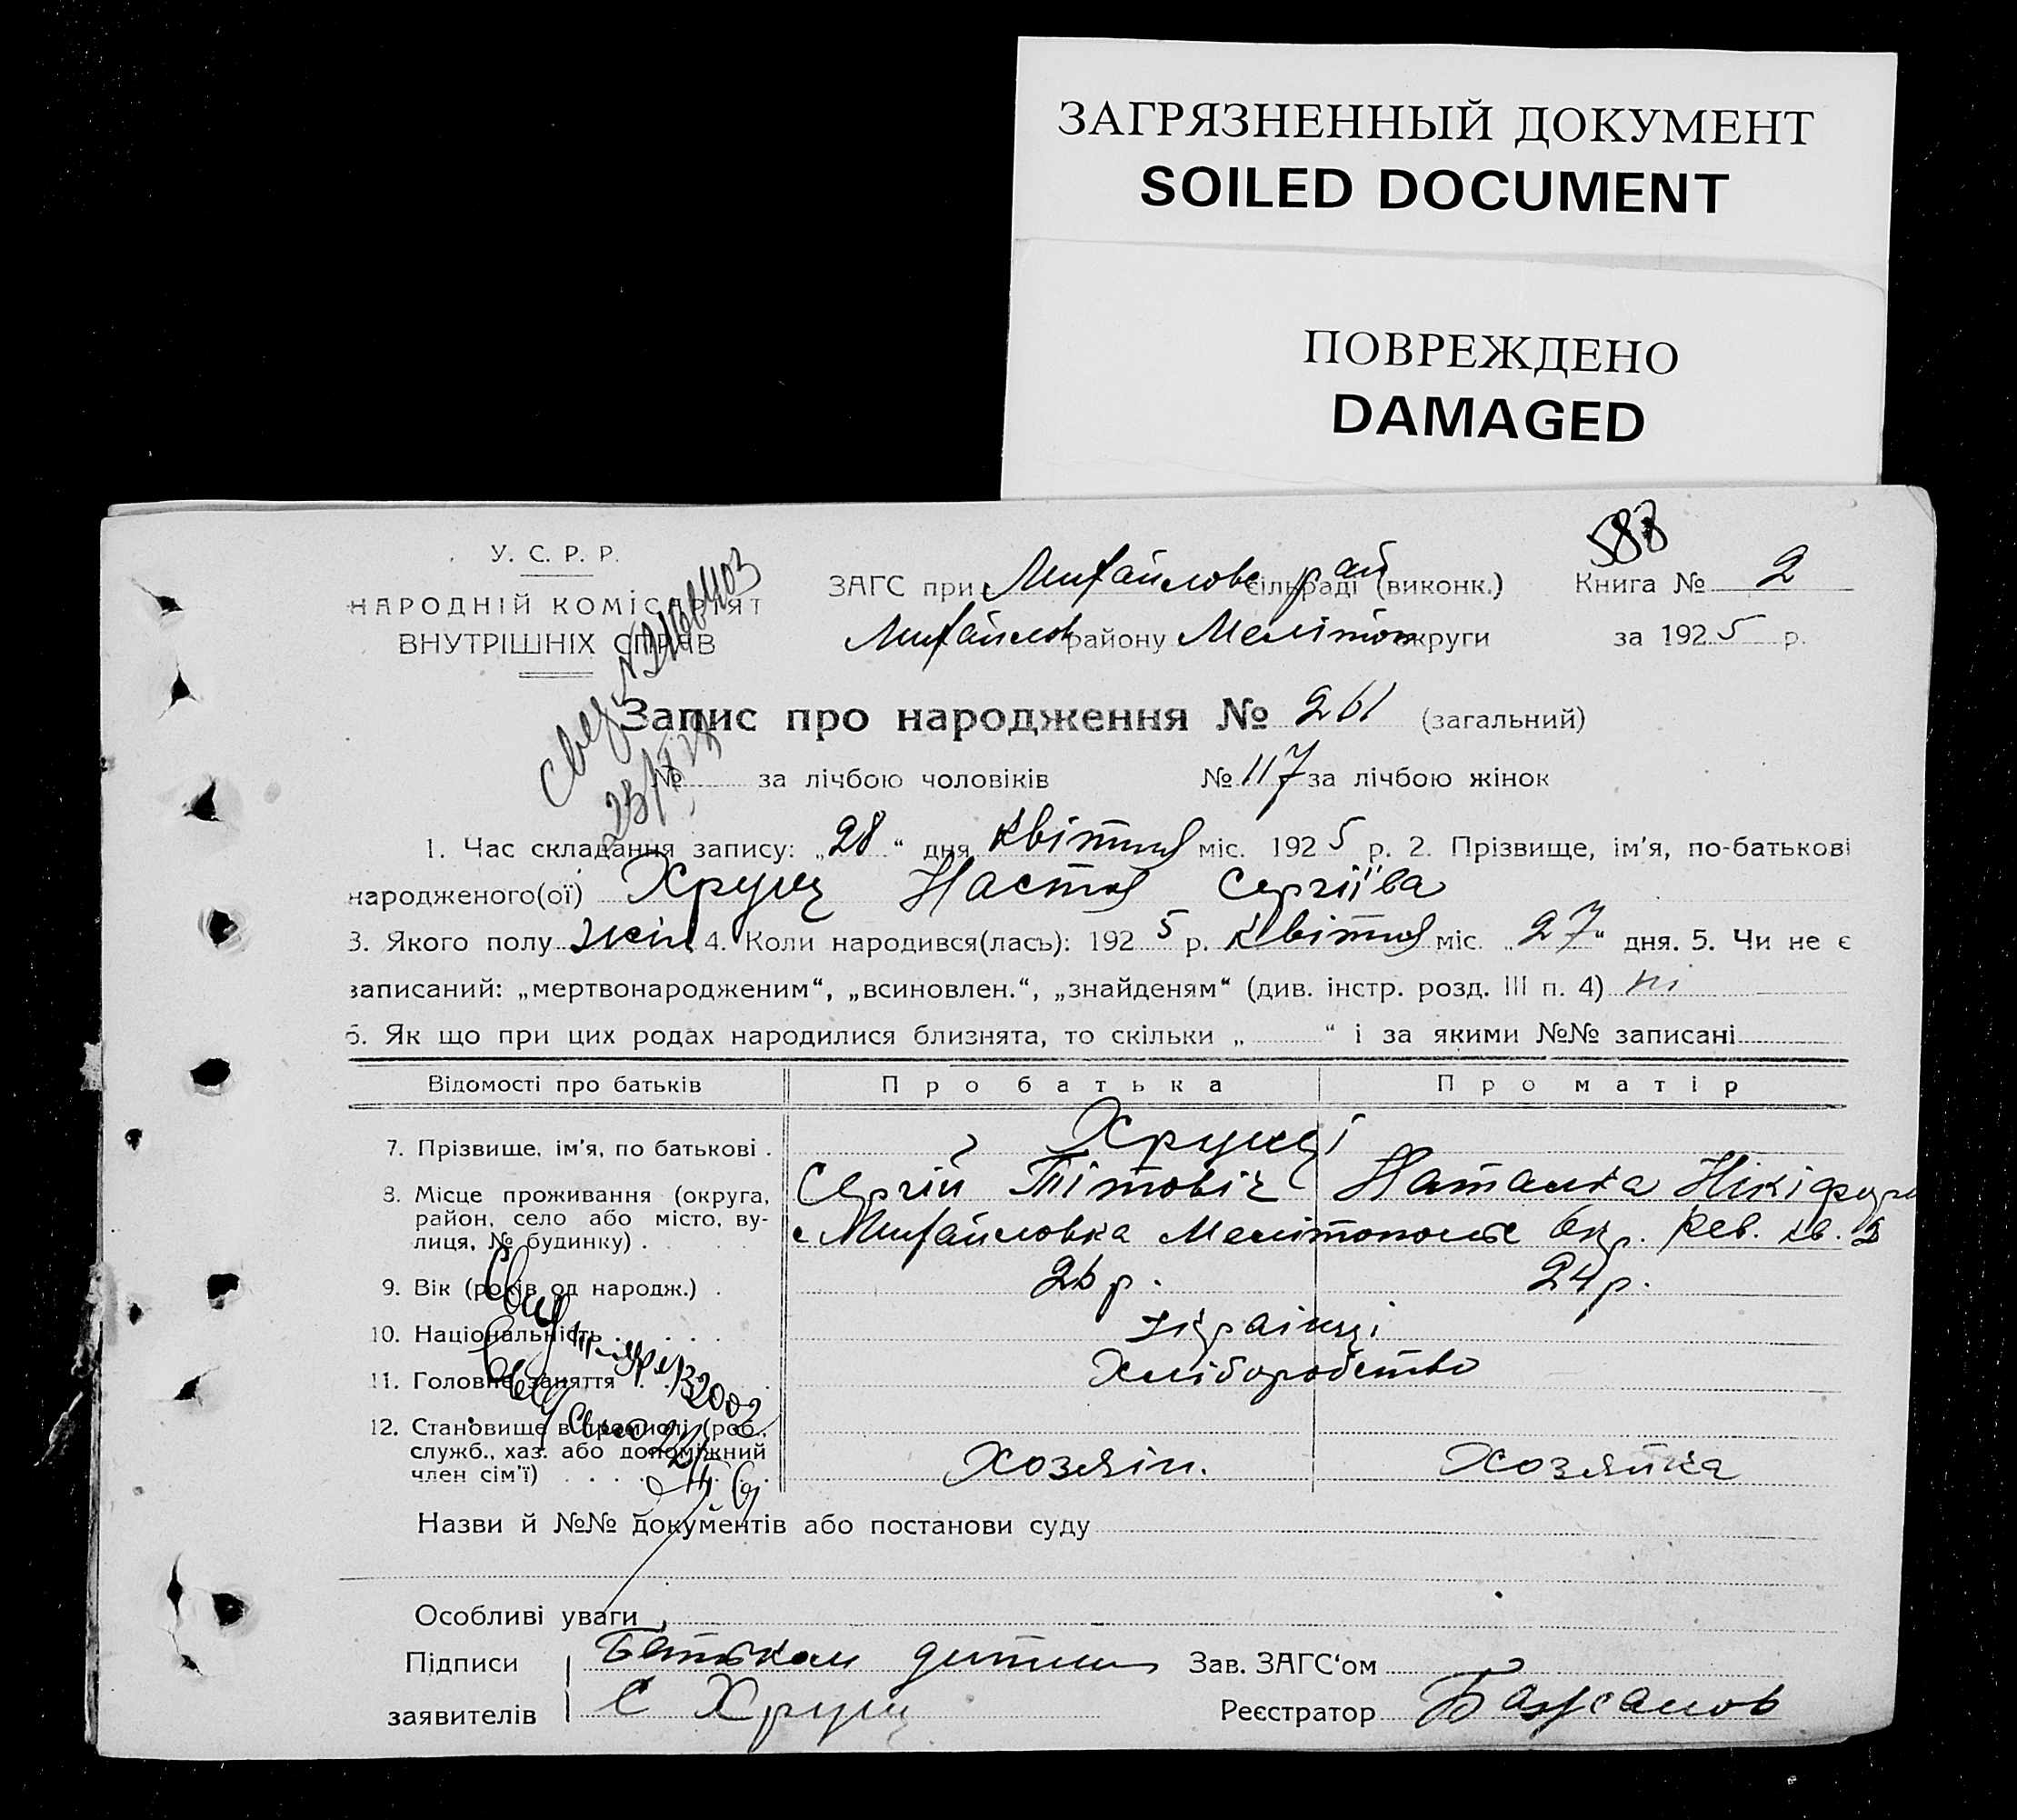 ЗАГРЯЗНЕННЫЙ ДОКУМЕНТ
SOILED DOCUMENT
ПОВРЕЖДЕНО
DAMAGED
588
У. С. Р. Р.
НАРОДНІЙ КОМІСАРІЯТ
ВНУТРІШНІХ СПРАВ
ЗАГС при Михайлове сільраді рай (виконк.) Книга № 2
Михайлов району Мелітоп округи за 1925 р.
Запис про народження № 261 (загальний)
№ за лічбою чоловіків № 117 за лічбою жінок
1. Час складання запису: „28“ дня Квітня міс. 1925 р. 2. Прізвище, ім'я, по-батькові
народженого(ої) Хрущ Настя Сергіїва
3. Якого полу жін 4. Коли народився(лась): 1925 р. Квітня міс. „27“ дня. 5. Чи не є
записаний: „мертвонародженим“, „всиновлен.“, „знайденям“ (див. інстр. розд. III п. 4) ні
6. Як що при цих родах народилися близнята, то скільки „ “ і за якими №№ записані
Відомості про батьків Про батька Про матір
7. Прізвище, ім'я, по батькові . Хрущі
8. Місце проживання (округа, Сергій Тітовіч Наталка Нікіфор
район, село або місто, ву-
лиця, № будинку) . Михайловка Мелітопольс Окр. Рев. кв. 2
9. Вік (років од народж.) . 26 р. 24 р.
10. Національність . Українці
11. Головне заняття . Хліборобство
12. Становище в промислі (роб.,
служб., хаз. або допоміжний
член сім'ї) Хозяін. Хозяйка
Назви й №№ документів або постанови суду
Особливі уваги
Підписи Батьком дитини Зав. ЗАГС'ом
заявителів С Хрущ Реєстратор Бажанов